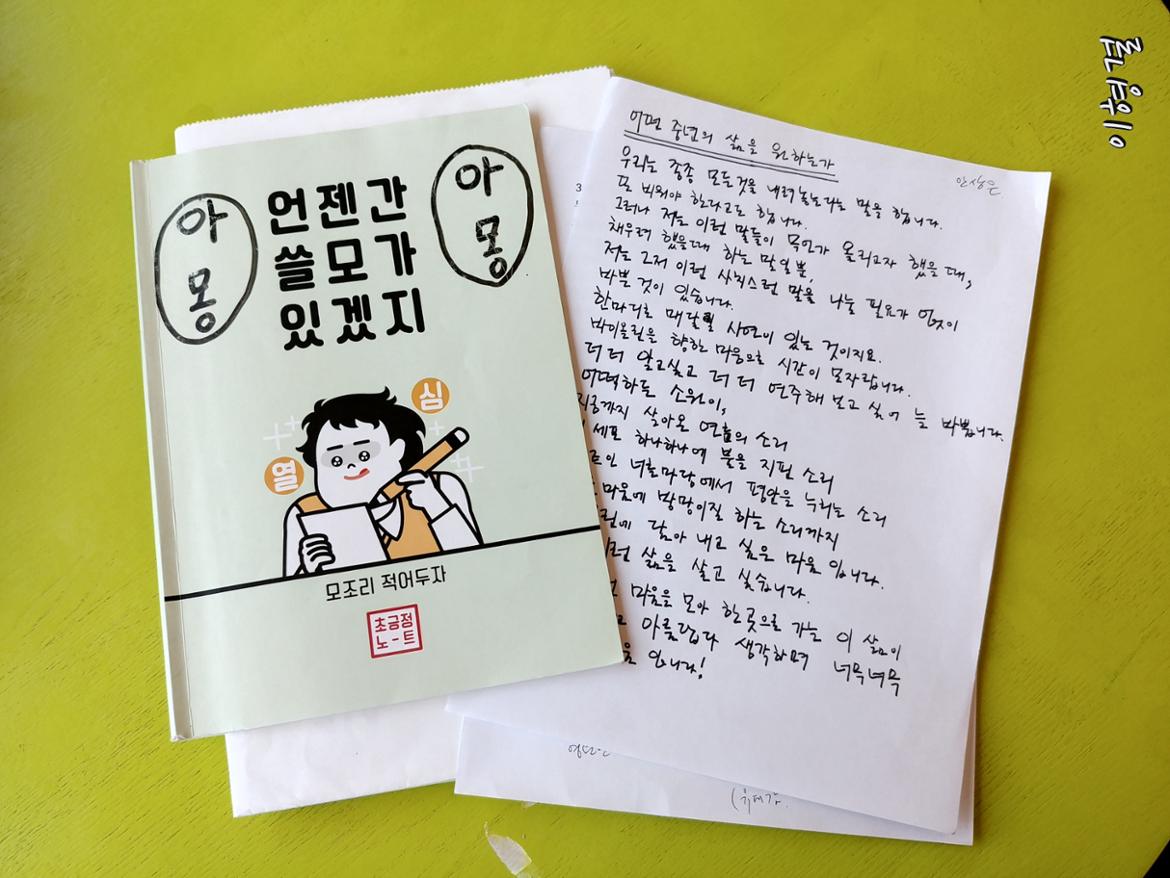 아몽
언젠간
쓸모가
있겠지
아몽
심
열
모조리 적어두자
초긍정
노-트
어떤 중년의 삶을 원하는가
안상은
우리는 종종 모든것을 내려놓는다는 말을 합니다.
또 비워야 한다고도 합니다.
그러나 저는 이런 말들이 무언가 올리고자 했을 때,
채우려 했을때 하는 말일뿐,
저는 그저 이런 사치스런 말을 나눌 필요가 없이
바쁜 것이 있습니다.
한마디로 매달릴 사연이 있는 것이지요.
바이올린을 향한 마음으로 시간이 모자랍니다.
더 더 알고싶고 더 더 연주해 보고 싶어 늘 바쁩니다.
소원이,
지금까지 살아온 소리
세포 하나하나에 불을 지핀 소리
평안을 누리는 소리
마음에 방망이질 하는 소리까지
담아 내고 싶은 마음 입니다.
삶을 살고 싶습니다.
마음을 모아 한곳으로 가는 이 삶이
아름답다 생각하며 너무너무
입니다!